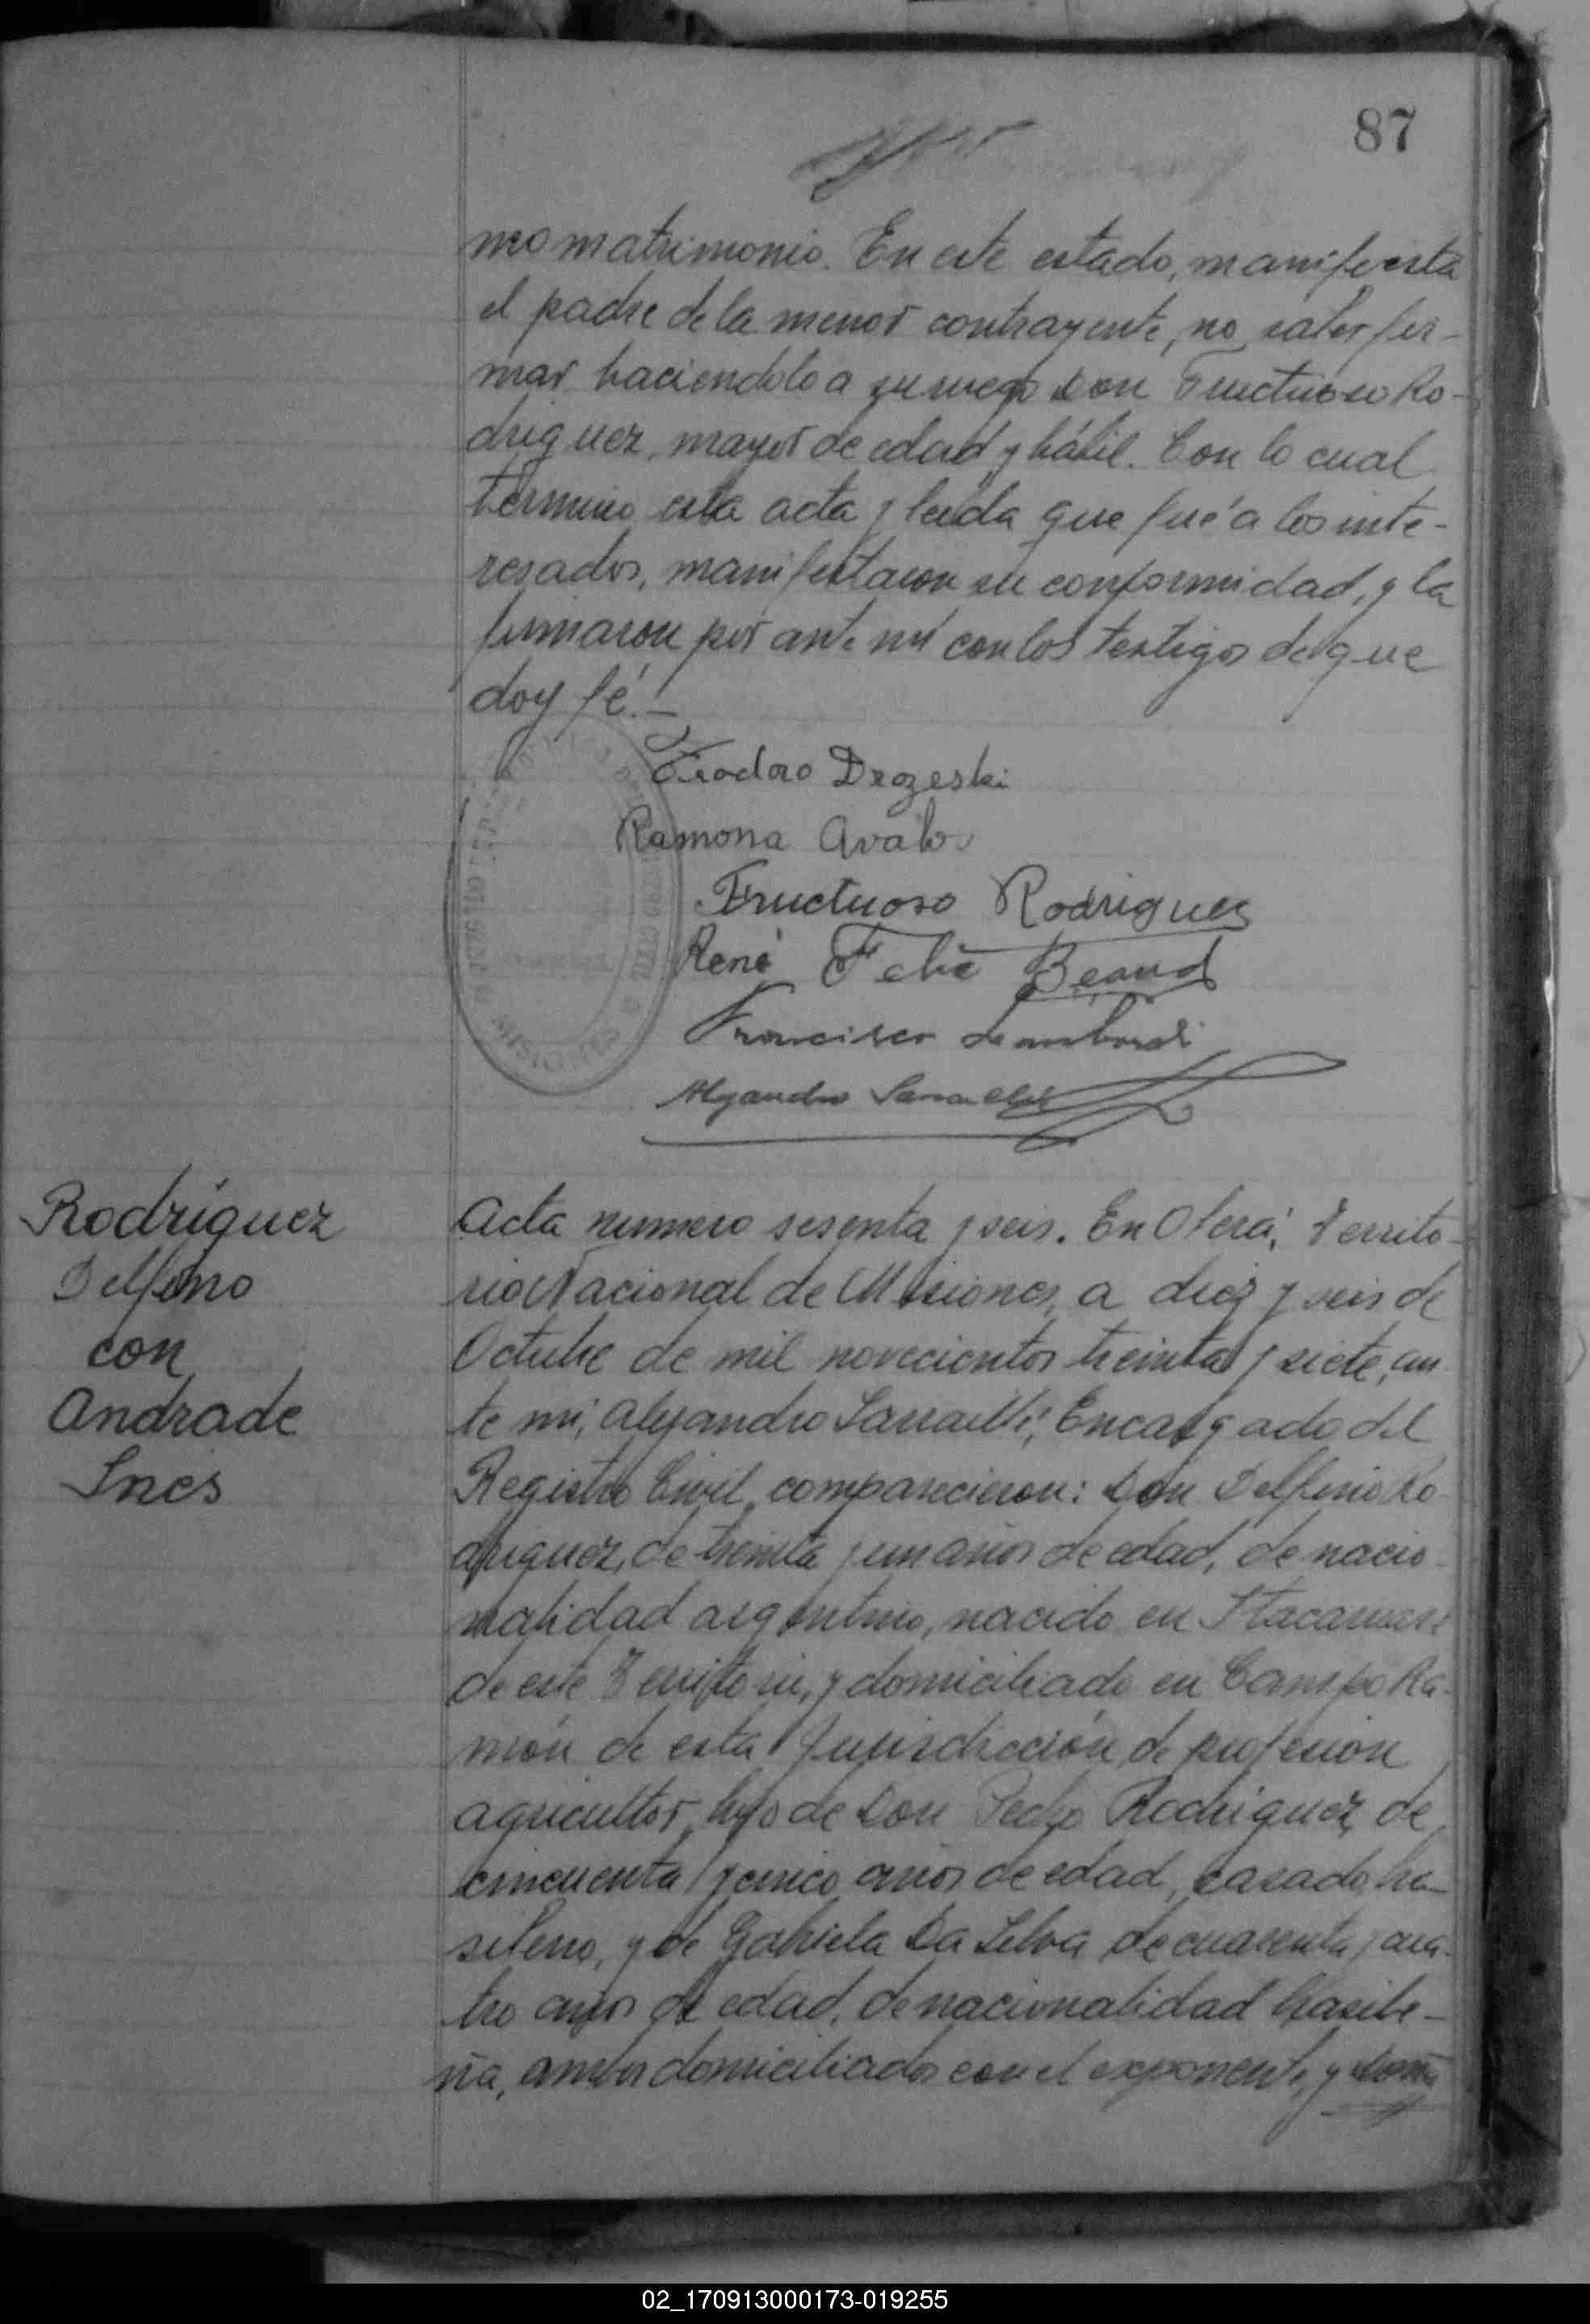 87
mo matrimonio. En este estado, manifiesta
el padre de la menor contrayente, no saber fir-
mar haciendolo a su ruego Don Fructuoso Ro-
driguez, mayor de edad y hábil. Con lo cual
termino esta acta y leida que fué a los inte-
resados, manifestaron su conformidad, y la
firmaron por ante mi con los testigos de que
doy fé.-
Teodoro Drozeski
Ramona Avalos
Fructuoso Rodriguez
René Felix Beaud
Francisco Lombardi
Alejandro
MISIONES
Rodríguez
Delfino
con
Andrade
Ines
Acta numero sesenta y seis. En Oberá, Territo-
rio Nacional de Misiones, a diez y seis de
Octubre de mil novecientos treinta y siete, an-
te mi, Alejandro Encargado del
Registro Civil, comparecieron: Don Delfino Ro-
driguez, de treinta y un años de edad, de nacio-
nalidad argentino, nacido en Itacaruaré
de este Territorio, y domiciliado en Campo Ra-
món de esta Jurisdicción, de profesion
agricultor, hijo de Don Pedro Rodriguez, de
cincuenta y cinco años de edad, casado, bra-
sileno, y de Gabriela Da Selva, de cuarenta y cua-
tro años de edad, de nacionalidad brasile-
ña, ambos domiciliados con el exponente, y doña
02_170913000173-019255